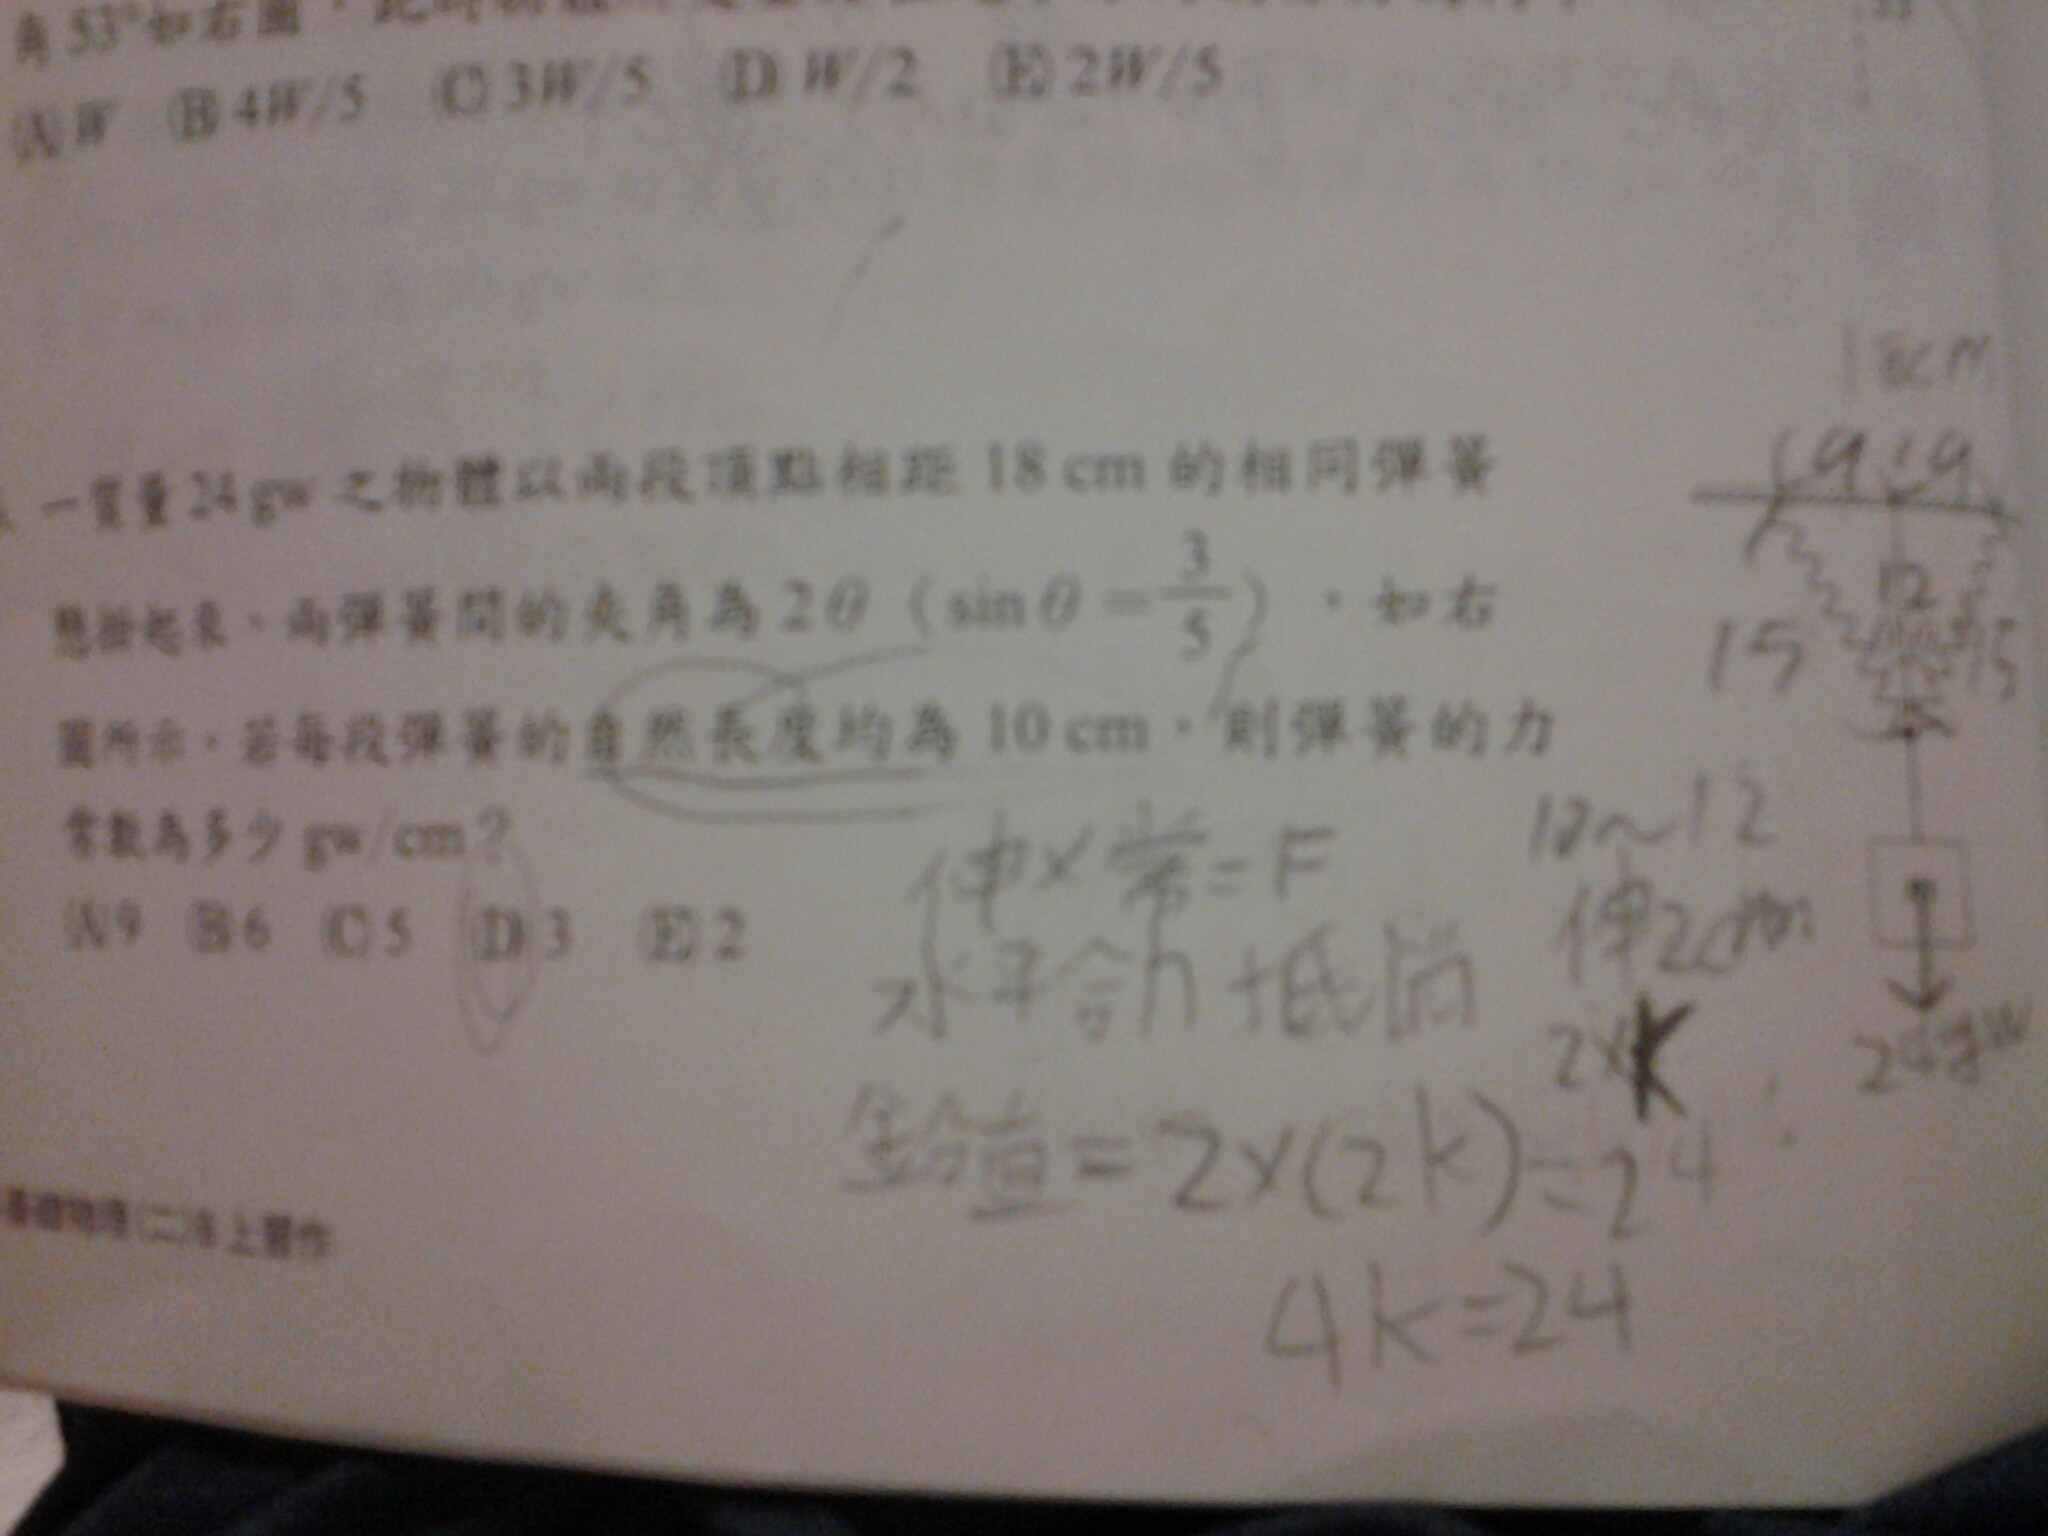 角53°如右圖，此時
(A) W (B) 4W/5 (C) 3W/5 (D) W/2 (E) 2W/5
一質量24 gw 之物體以兩段頂點相距 18 cm 的相同彈簧
懸掛起來，兩彈簧間的夾角為2θ（sinθ=3/5），如右
圖所示。若每段彈簧的自然長度均為 10 cm，則彈簧的力
常數為多少 gw/cm？
(A) 9 (B) 6 (C) 5 (D) 3 (E) 2
18cm
9 9
12
15 15
24gw
伸×常=F
水平合力抵消
10~12
伸2cm
2×K
鉛直=2×(2k)=24
4k=24
基礎物理(二)B上習作